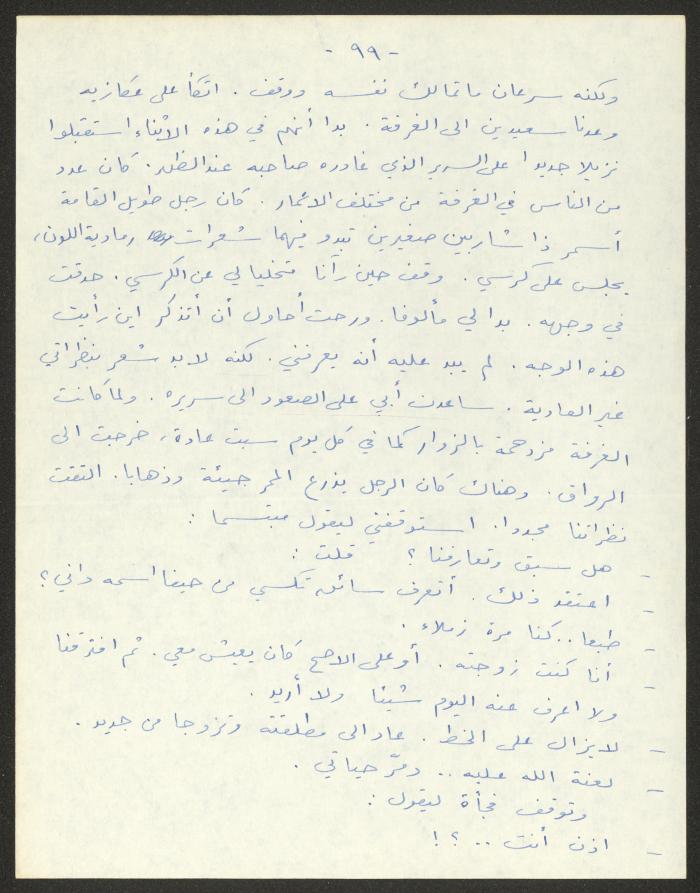 - ٩٩ -
ولكنه سرعان ما تمالك نفسه ووقف . اتكأ على عكازيه
وعدنا سعيدين الى الغرفة . بدا أنهم في هذه الأثناء استقبلوا
نزيلا جديدا على السرير الذي غادره صاحبه عند الظهر . كان عدد
من الناس في الغرفة من مختلف الاعمار . كان رجل طويل القامة
أسمر ذا شاربين صغيرين تبدو فيهما شعرات رمادية اللون ،
يجلس على كرسي . وقف حين رآنا متخليا لي عن الكرسي . حدقت
في وجهه . بدا لي مألوفا . ورحت أحاول أن أتذكر اين رأيت
هذه الوجه . لم يبد عليه أنه يعرفني . لكنه لا بد شعر بنظراتي
غير العادية . ساعدت أبي على الصعود الى سريره . ولما كانت
الغرفة مزدحمة بالزوار كما في كل يوم سبت عادة ، خرجت الى
الرواق . وهناك كان الرجل يذرع الممر جيئة وذهابا . التقت
نظراتنا مجددا . استوقفني ليقول مبتسما :
- هل سبق وتعارفنا ؟ قلت :
- اعتقد ذلك . أتعرف سائق تكسي من حيفا اسمه داني ؟
- طبعا .. كنا مرة زملاء .
- أنا كنت زوجته . أو على الاصح كان يعيش معي . ثم افترقنا
ولا اعرف عنه اليوم شيئا ولا أريد .
- لا يزال على الخط . عاد الى مطلقته وتزوجا من جديد .
- لعنة الله عليه .. دمّر حياتي .
وتوقف فجأة ليقول :
- اذن أنت .. ؟ !